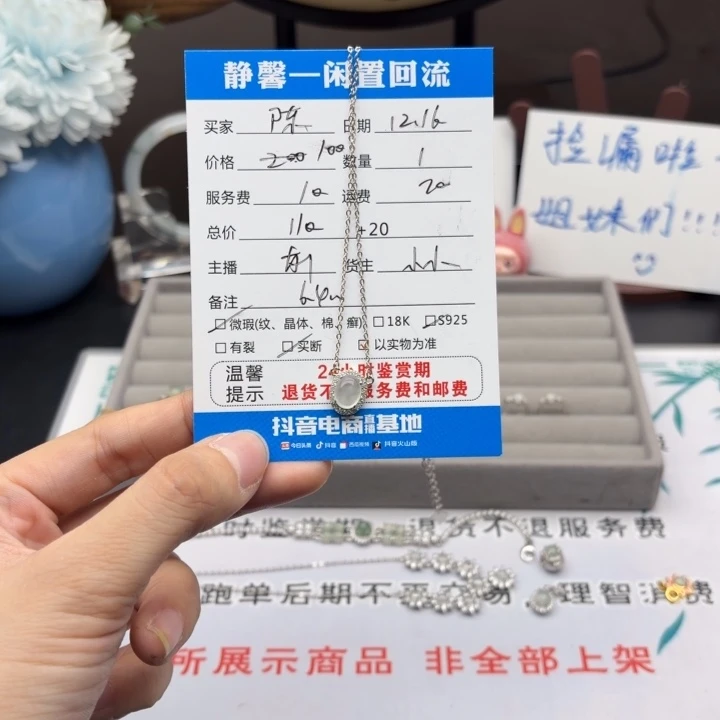 静馨一闲置回流
买家 陈 日期 12.16
价格 200 100 数量 1
服务费 10 运费 20
总价 110 +20
主播 货主
备注
□微瑕(纹、晶体、棉、癣) □18K □S925
□有裂 □买断 □以实物为准
温馨提示 24小时鉴赏期
退货不 服务费和邮费
抖音电商直播基地
今日头条 抖音 西瓜视频 抖音火山版
捡漏啦
姐妹们!!!
时鉴赏期 退货不退服务费
跑单后期不再交易 理智消费
所展示商品 非全部上架